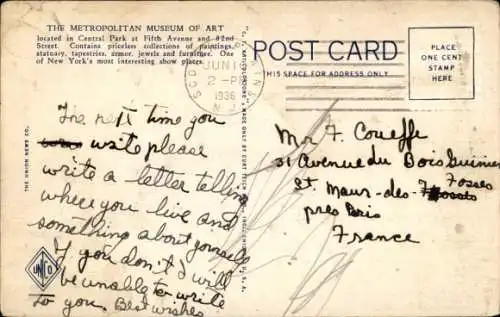 THE METROPOLITAN MUSEUM OF ART
located in Central Park at Fifth Avenue and 82nd
Street. Contains priceless collections of paintings,
statuary, tapestries, armor, jewels and furniture. One
of New York's most interesting show places.
JUN 10
2-PM
1936
N.Y.
THE UNION NEWS CO.
UNCO
POST CARD
THIS SPACE FOR ADDRESS ONLY
PLACE
ONE CENT
STAMP
HERE
The next time you
write please
write a letter telling
where you live and
something about yourself
If you don't I will
be unable to write
to you. Best wishes
Mr F. Coueffe
31 Avenue du Bois Guimier
St. Maur-des-Fosses
près Paris
France